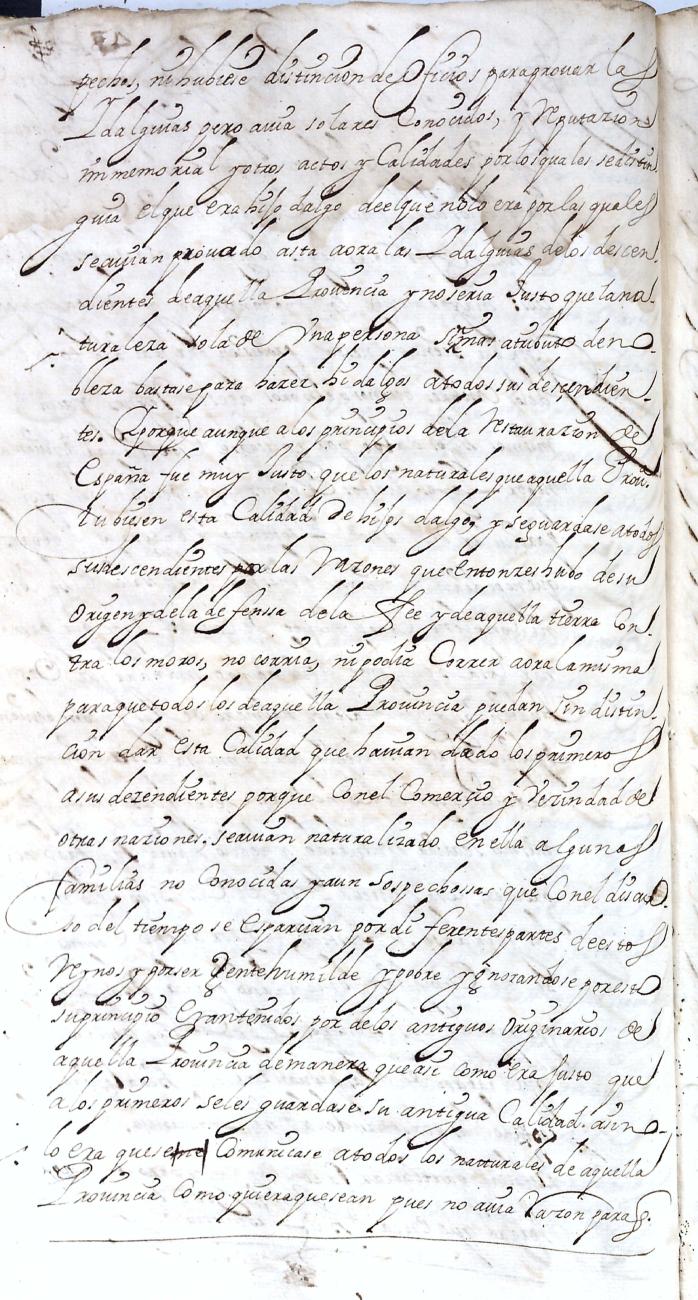 pechos, ni hubiese distincion de oficios para provar las
Idalguias pero avia solares Conocidos, y Reputazion
inmemorial y otros actos y Calidades por los quales se distin-
guia el que era hijo dalgo de el que no lo era por las quales
se avian provado asta aora las Idalguias de los descen-
dientes de aquella Provincia y no seria Justo que la na-
turaleza sola de Una persona sin mas atributo de no-
bleza bastase para hazer hidalgos a todos sus descendien-
tes. Y porque aunque a los principios de la Restaurazion de
España fue muy Justo que los naturales que aquella Prou.ª
tubiesen esta Calidad de hijos dalgo, y se guardase a todos
sus descendientes por las Razones que entonzes hubo de su
Origen y de la defenssa de la Fee y de aquella tierra Con-
tra los moros, no corria, ni podia Correr aora la misma
para que todos los de aquella Provincia puedan sin distin-
cion dar esta Calidad que havian dado los primeros
a sus dezendientes porque Con el Comerçio y Vezindad de
otras naziones. se avian naturalizado en ella algunas
familias no Conocidas y aun sospechossas que Con el discur-
so del tiempo se esparcian por diferentes partes de estos
Reynos y por ser Jente humilde y pobre y ygnorandose por esto
su principio Eran tenidos por de los antiguos Originarios de
aquella Provincia de manera que asi Como era Justo que
a los primeros se les guardase su antigua Calidad. asi no
lo era que se Comunicase a todos los natturales de aquella
Provincia Como quiera que sean pues no avia Razon para q.